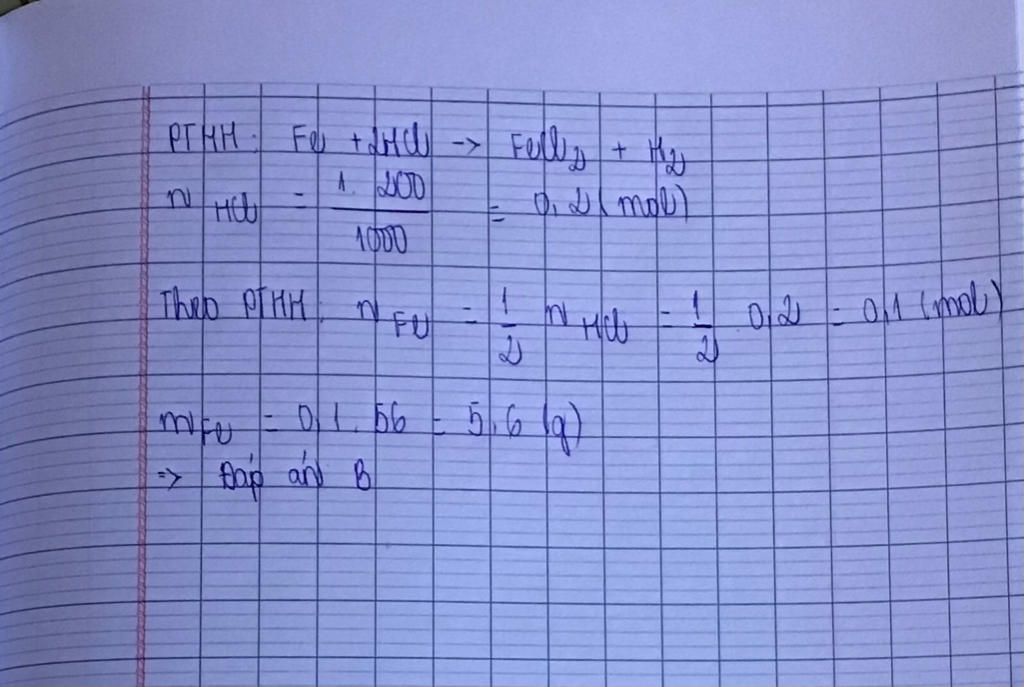 PTHH: Fe + 2HCl -> FeCl2 + H2
n HCl = 1.200/1000 = 0,2 (mol)
Theo PTHH: n Fe = 1/2 n HCl = 1/2 . 0,2 = 0,1 (mol)
mFe = 0,1.56 = 5,6 (g)
=> Đáp án B